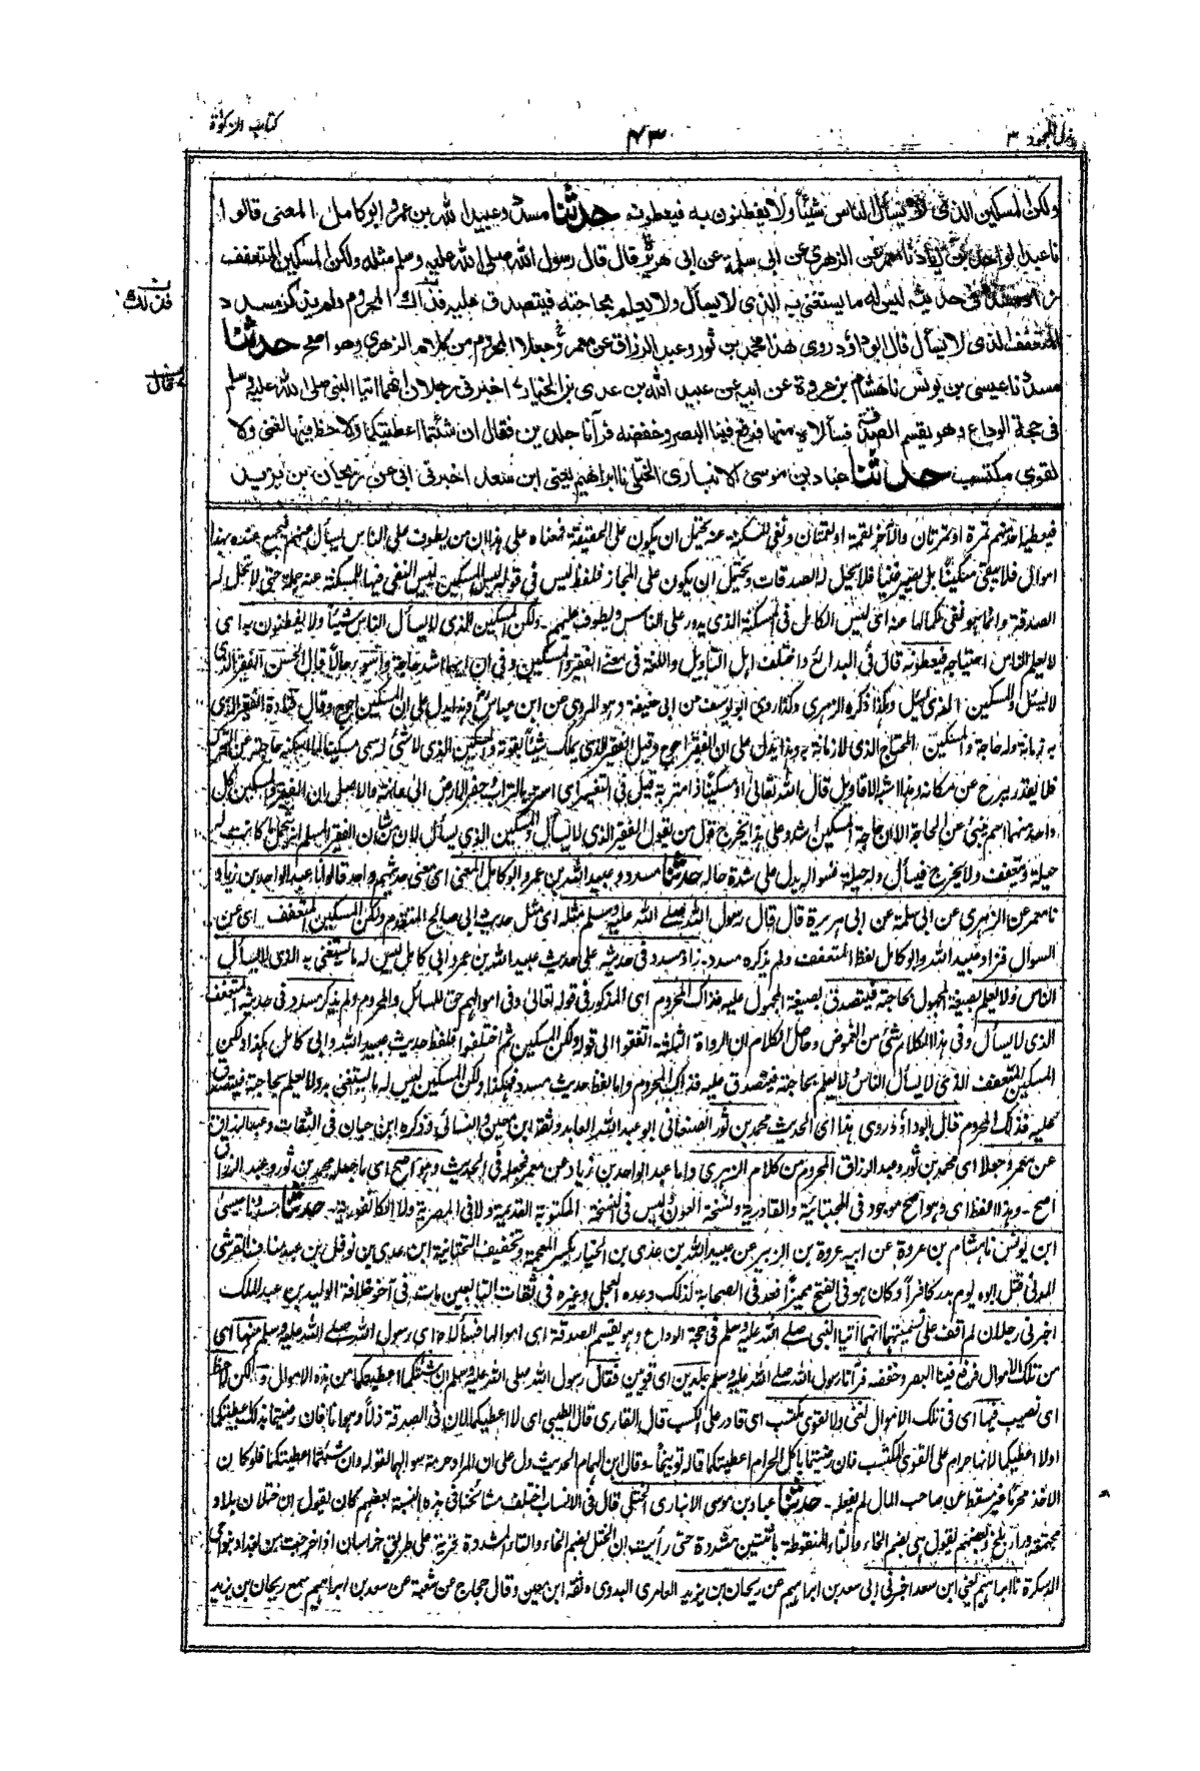 بذل المجهود ٣
٤٣
كتاب الزكوٰة
ولكن المسكين الذى لا يسأل الناس شيئاً ولا يفطنون به فيعطونه حدثنا مسدد وعبيد الله بن عمر وابو كامل المعنى قالوا
نا عبد الواحد بن زياد نا معمر عن الزهرى عن ابى سلمة عن ابى هريرة قال قال رسول الله صلى الله عليه وسلم مثله ولكن المسكين المتعفف
زاد مسدد فى حديثه ليس له ما يستغنى به الذى لا يسأل ولا يعلم بحاجته فيتصدق عليه فذاك المحروم ولم يذكر مسدد
المتعفف الذى لا يسأل قال ابو داؤد روى هذا محمد بن ثور وعبد الرزاق عن معمر وجعلا المحروم من كلام الزهرى وهو اصح حدثنا
مسدد نا عيسى بن يونس نا هشام بن عروة عن ابيه عن عبيد الله بن عدى بن الخيار اخبرنى رجلان انهما اتيا النبى صلى الله عليه وسلم
فى حجة الوداع وهو يقسم الصدقة فسألاه منها فرفع فينا البصر وخفضه فرآنا جلدين فقال ان شئتما اعطيتكما ولا حظ فيها لغنى ولا
لقوى مكتسب حدثنا عباد بن موسى الانبارى الختلى نا ابراهيم يعنى ابن سعد اخبرنى ابى عن ريحان بن يزيد
فذلك
قال
فيعطيه احد منهم تمرة او تمرتان والآخر لقمة او لقمتان ونفى المسكنة عنه يحتمل ان يكون على الحقيقة فمعناه على هذا ان من يطوف على الناس يسأل منهم يجمع عنده بهذا
اموال فلا يبقى مسكيناً بل يصير غنياً فلا يحل له الصدقات ويحتمل ان يكون على المجاز فلفظ ليس فى قوله ليس المسكين ليس النفى فيها للمسكنة عنه جملة حتى لا تحل له
الصدقة وانما هو نفى لكمالها عنه اى ليس الكامل فى المسكنة الذى يدور على الناس ويطوف عليهم ـ ولكن المسكين الذى لا يسأل الناس شيئاً ولا يفطنون به اى
لا يعلم الناس احتياجه فيعطونه قال فى البدائع واختلف اهل التأويل واللغة فى معنى الفقير والمسكين وفى ان ايهما اشد حاجة واسوء حالا قال الحسن الفقير الذى
لا يسئل والمسكين الذى يسئل وهكذا ذكره الزهرى وكذا روى ابو يوسف عن ابى حنيفة وهو المروى عن ابن عباس وهذا يدل على ان المسكين احوج وقال قتادة الفقير الذى
به زمانة وله حاجة والمسكين المحتاج الذى لا زمانة به وهذا يدل على ان الفقير احوج وقيل الفقير الذى يملك شيئاً يقوته والمسكين الذى لا شئ له سمى مسكيناً لما اسكنه حاجته عن التحرك
فلا يقدر يبرح عن مكانه وهذا اشبه الاقاويل قال الله تعالى او مسكينًا ذا متربة قيل فى التفسير اى استتر بالتراب وحفر الارض الى عانته والاصل ان الفقير والمسكين كل
واحد منهما اسم ينبئ عن الحاجة الا ان حاجة المسكين اشد وعلى هذا يخرج قول من يقول الفقير الذى لا يسأل والمسكين الذى يسأل لان من شأن الفقير المسلم ان يتحمل ما كانت له
حيلة ويتعفف ولا يخرج فيسأل وله حيلة فسواله يدل على شدة حاله حدثنا مسدد وعبيد الله بن عمر وابو كامل المعنى اى معنى حديثهم واحد قالوا نا عبد الواحد بن زياد
نا معمر عن الزهرى عن ابى سلمة عن ابى هريرة قال قال رسول الله صلى الله عليه وسلم مثله اى مثل حديث ابى صالح المتقدم ولكن المسكين المتعفف اى عن
السوال فزاد عبيد الله وابو كامل لفظ المتعفف ولم يذكره مسدد ـ زاد مسدد فى حديثه على حديث عبيد الله بن عمر وابى كامل ليس له ما يستغنى به الذى لا يسأل
الناس ولا يعلم بصيغة المجهول بحاجته فيتصدق بصيغة المجهول عليه فذاك المحروم اى المذكور فى قوله تعالى وفى اموالهم حق للسائل والمحروم ولم يذكر مسدد فى حديثه المتعفف
الذى لا يسأل وفى هذا الكلام شئ من الغموض وحاصل الكلام ان الرواة الثلثة اتفقوا الى قوله ولكن المسكين ثم اختلفوا فلفظ حديث عبيد الله وابى كامل هكذا ولكن
المسكين المتعفف الذى لا يسأل الناس ولا يعلم بحاجته فيتصدق عليه فذاك المحروم واما لفظ حديث مسدد فهكذا ولكن المسكين ليس له ما يستغنى به ولا يعلم بحاجته فيتصدق
عليه فذاك المحروم قال ابو داؤد روى هذا اى الحديث محمد بن ثور الصنعانى ابو عبد الله العابد وثقه ابن معين والنسائى وذكره ابن حبان فى الثقات وعبد الرزاق
عن معمر وجعلا اى محمد بن ثور وعبد الرزاق المحروم من كلام الزهرى واما عبد الواحد بن زياد عن معمر فجعله فى الحديث وهو اصح اى ما جعله محمد بن ثور وعبد الرزاق
اصح ـ وهذا اللفظ اى وهو اصح موجود فى المجتبائية والقادرية ونسخة العون وليس فى النسخة المكتوبة القديمة ولا فى المصرية ولا الكانفورية ـ حدثنا مسدد نا عيسى
ابن يونس نا هشام بن عروة عن ابيه عروة بن الزبير عن عبيد الله بن عدى بن الخيار بكسر المعجمة وتخفيف التحتانية ابن عدى بن نوفل بن عبد مناف القرشى
المدنى قتل ابوه يوم بدر كافرا وكان هو فى الفتح مميزًا فعد فى الصحابة لذلك وعده العجلى وغيره فى ثقات التابعين مات فى آخر خلافة الوليد بن عبد الملك
اخبرنى رجلان لم اقف على تسميتهما انهما اتيا النبى صلى الله عليه وسلم فى حجة الوداع وهو يقسم الصدقة اى اموالها فسألاه اى رسول الله صلى الله عليه وسلم منها اى
من تلك الاموال فرفع فينا البصر وخفضه فرآنا رسول الله صلى الله عليه وسلم جلدين اى قويين فقال رسول الله صلى الله عليه وسلم ان شئتما اعطيتكما من هذه الاموال ولكن لا حظ
اى نصيب فيها اى فى تلك الاموال لغنى ولا لقوى مكتسب اى قادر على الكسب قال القارى قال الطيبى اى لا اعطيكما لان فى الصدقة ذلا وهوانا فان رضيتما بذلك اعطيتكما
او لا اعطيكما لانها حرام على القوى المكتسب فان رضيتما باكل الحرام اعطيتكما قاله توبيخاً ـ وقال ابن الهمام الحديث دل على ان المراد حرمة سوالهما لقوله وان شئتما اعطيتكما فلو كان
الاخذ محرما غير مسقط عن صاحب المال لم يفعله ـ حدثنا عباد بن موسى الانبارى الختلى قال فى الانساب اختلف مشائخنا فى هذه النسبة بعضهم كان يقول ان ختلان بلاد
مجتمعة وراء بلخ وبعضهم يقول هى بضم الخاء والتاء المنقوطة باثنتين مشددة حتى رأيت ان الختل بضم الخاء والتاء المشددة قرية على طريق خراسان اذا خرجت من بغداد بنواحى
الدسكرة نا ابراهيم يعنى ابن سعد اخبرنى ابى سعد بن ابراهيم عن ريحان بن يزيد العامرى البدوى وثقه ابن معين وقال حجاج عن شعبة عن سعد بن ابراهيم سمع ريحان بن يزيد